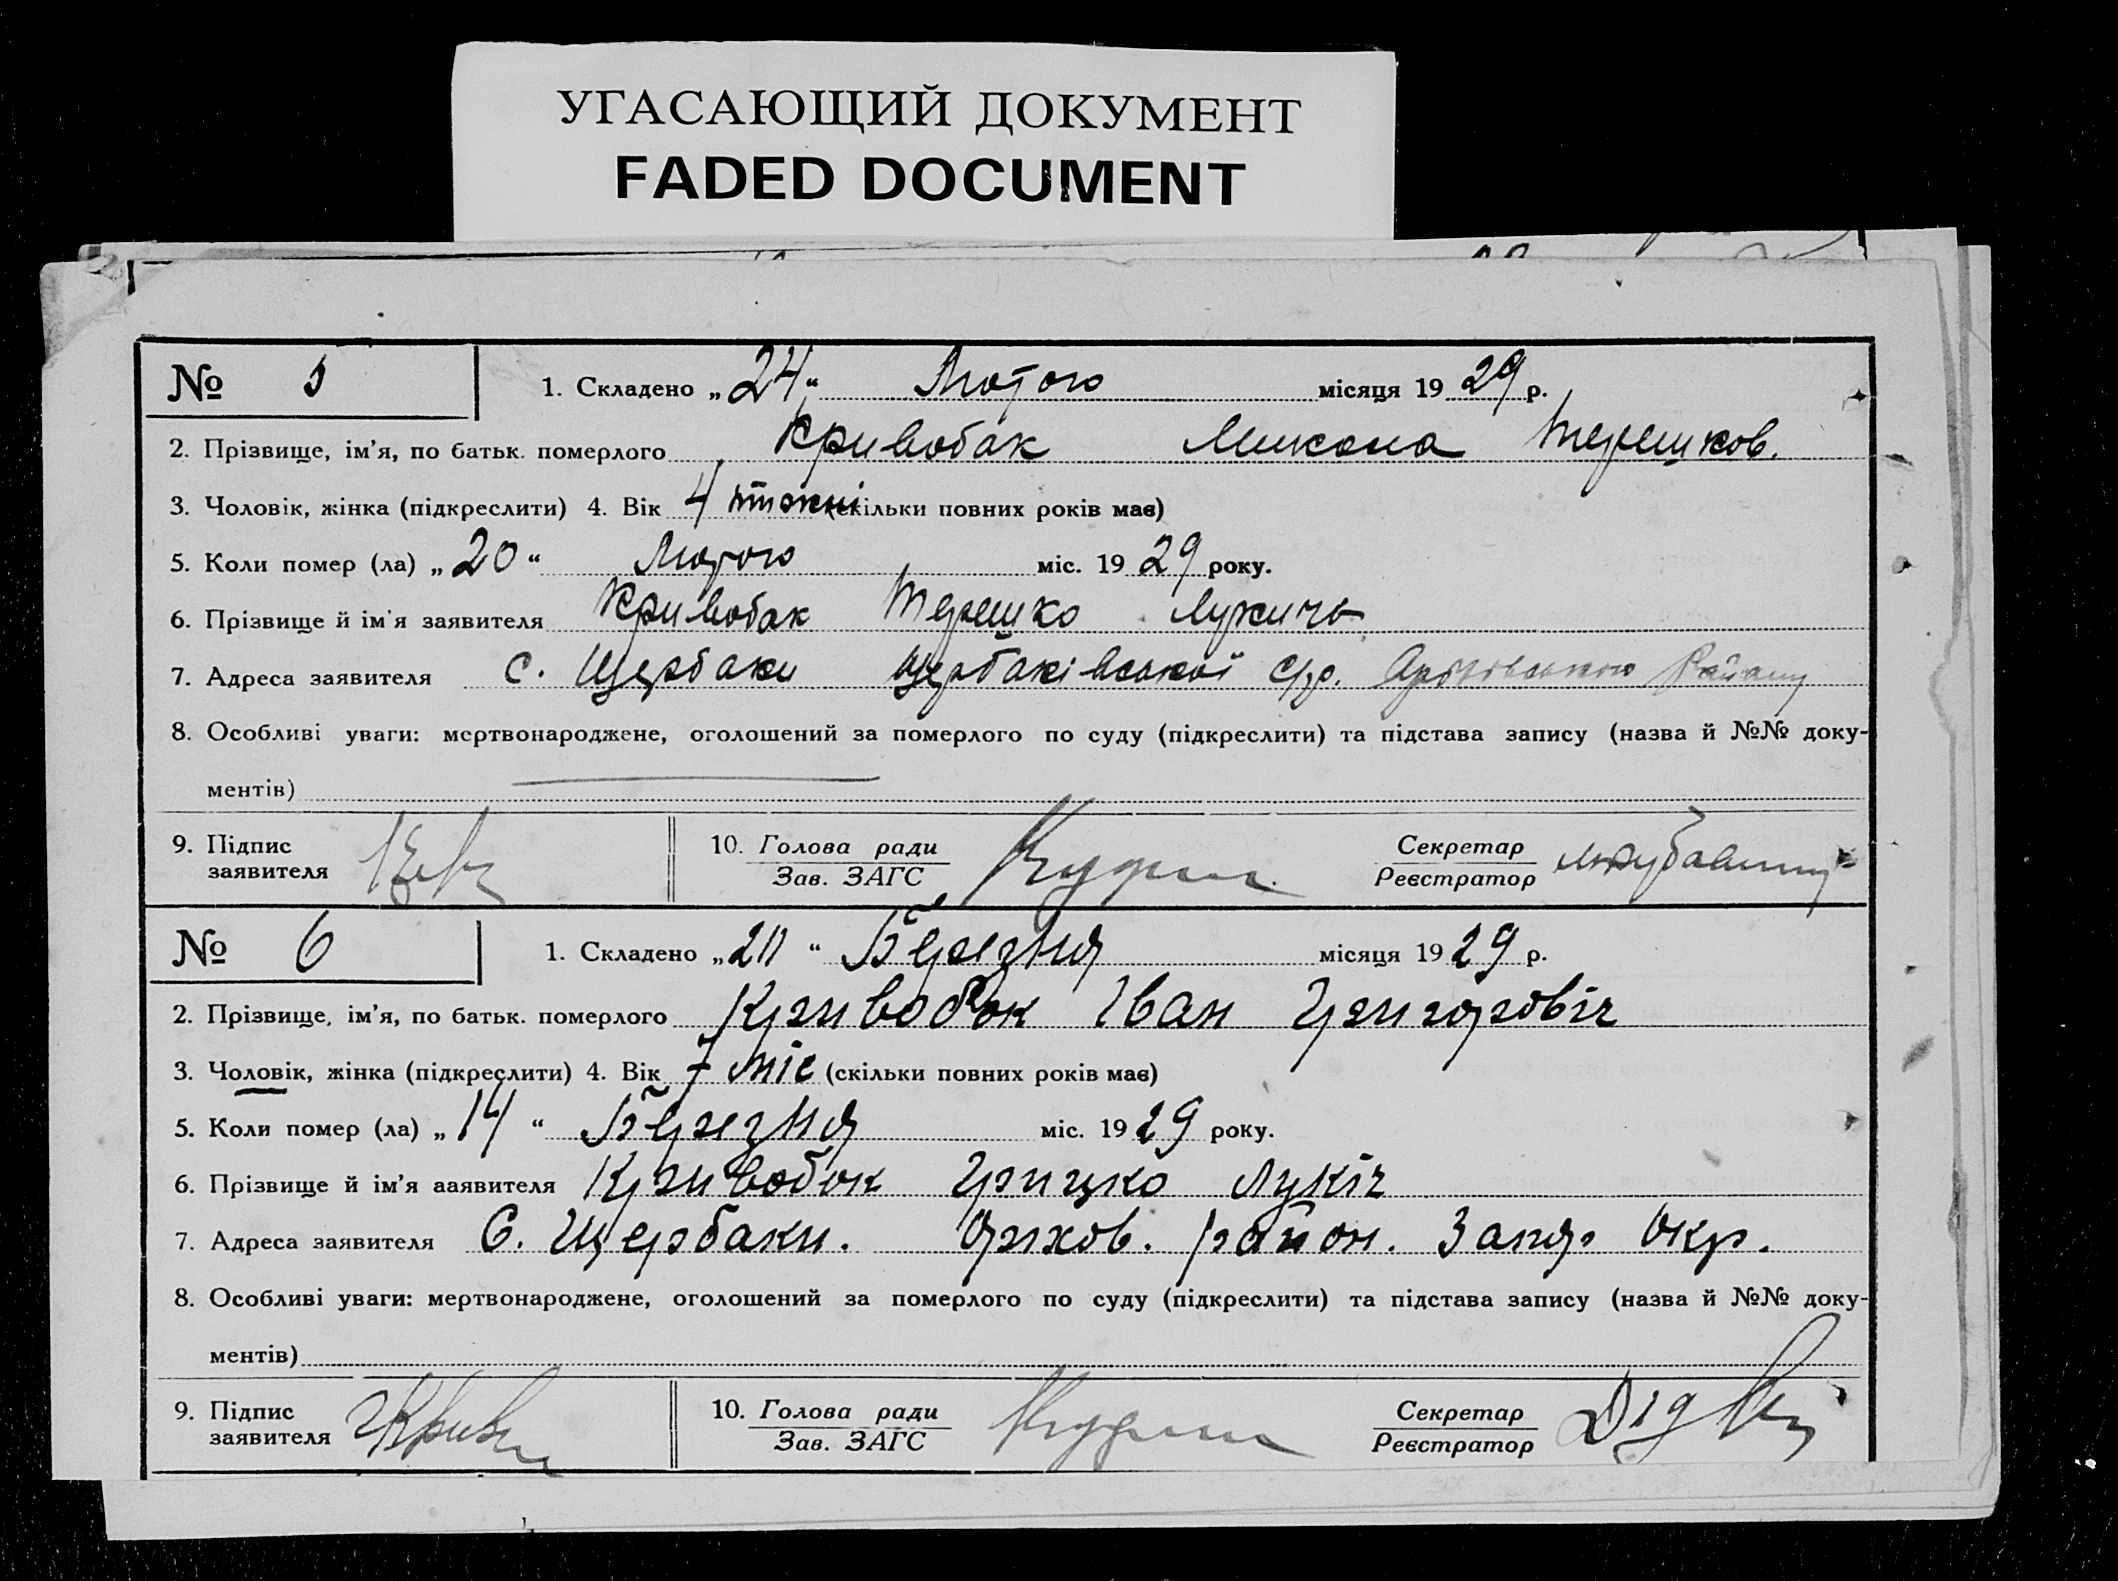 УГАСАЮЩИЙ ДОКУМЕНТ
FADED DOCUMENT
№ 5 1. Складено „24“ Лютого місяця 1929 р.
2. Прізвище, ім'я, по батьк. померлого Кривобак Микола Терешков.
3. Чоловік, жінка (підкреслити) 4. Вік 4 тижні (скільки повних років має)
5. Коли помер (ла) „20“ Лютого міс. 1929 року.
6. Прізвище й ім'я заявителя Кривобак Терешко Лукичь
7. Адреса заявителя с. Щербаки Щербаківської с/р. Оріхівського Району
8. Особливі уваги: мертвонароджене, оголошений за померлого по суду (підкреслити) та підстава запису (назва й №№ доку-
ментів)
9. Підпис заявителя 10. Голова ради Секретар
Зав. ЗАГС Реєстратор
№ 6 1. Складено „20“ Березня місяця 1929 р.
2. Прізвище, ім'я, по батьк. померлого Кривобок Іван Григоровіч
3. Чоловік, жінка (підкреслити) 4. Вік 7 міс (скільки повних років має)
5. Коли помер (ла) „14“ Березня міс. 1929 року.
6. Прізвище й ім'яааявителя Кривобок Грицко Лукіч
7. Адреса заявителя С. Щербаки. Оріхов. район. Запор Окр.
8. Особливі уваги: мертвонароджене, оголошений за померлого по суду (підкреслити) та підстава запису (назва й №№ доку-
ментів)
9. Підпис заявителя 10. Голова ради Секретар
Зав. ЗАГС Реєстратор